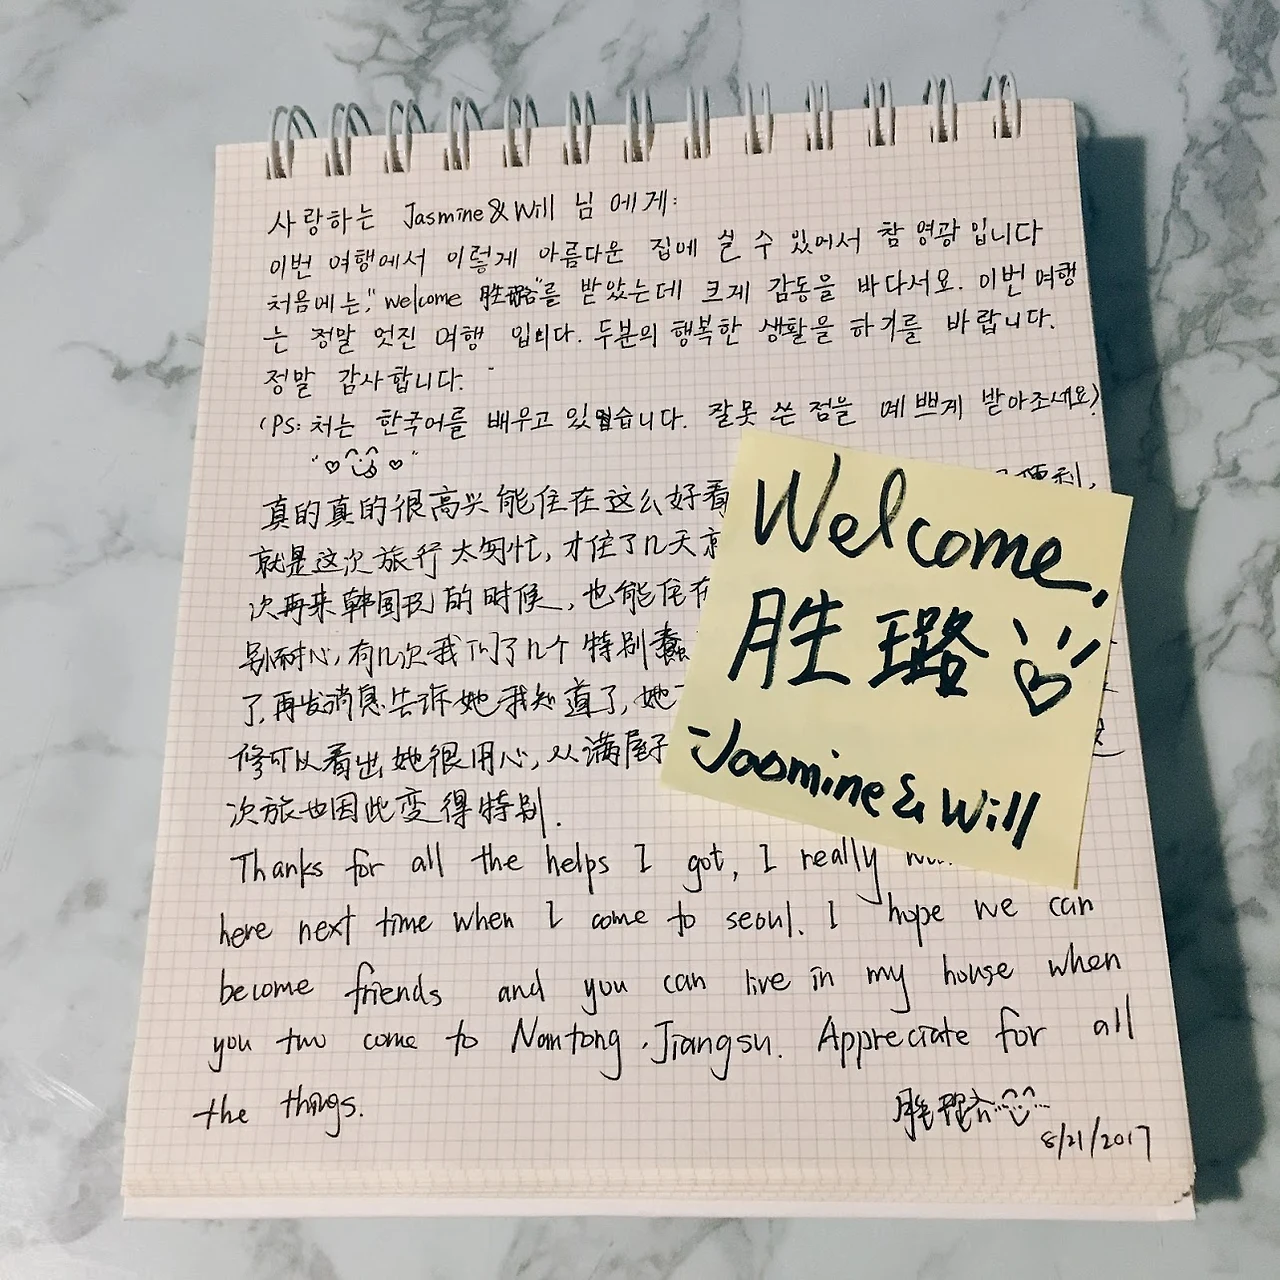 사랑하는 Jasmine & Will 님 에게:
이번 여행에서 이렇게 아름다운 집에 쉴 수 있어서 참 영광 입니다
처음에는, "welcome 胜璐"를 받았는데 크게 감동을 바다서요. 이번 여행
는 정말 멋진 여행 입니다. 두분의 행복한 생활을 하기를 바랍니다.
정말 감사합니다.
(PS: 처는 한국어를 배우고 있습니다. 잘못 쓴 점을 예쁘게 받아조세요)
真的真的很高兴能住在这么好看 便利,
就是这次旅行太匆忙, 才住了几天
次再来韩国玩的时候, 也能住在
别耐心, 有几次我问了几个特别蠢
了, 再发消息告诉她我知道了, 她
修可以看出她很用心, 从满屋子
次旅也因此变得特别.
Thanks for all the helps I got, I really
here next time when I come to seoul. I hope we can
become friends and you can live in my house when
you two come to Nantong, Jiangsu. Appreciate for all
the things.
胜璐
8/21/2017
Welcome,
胜璐
-Jasmine & Will